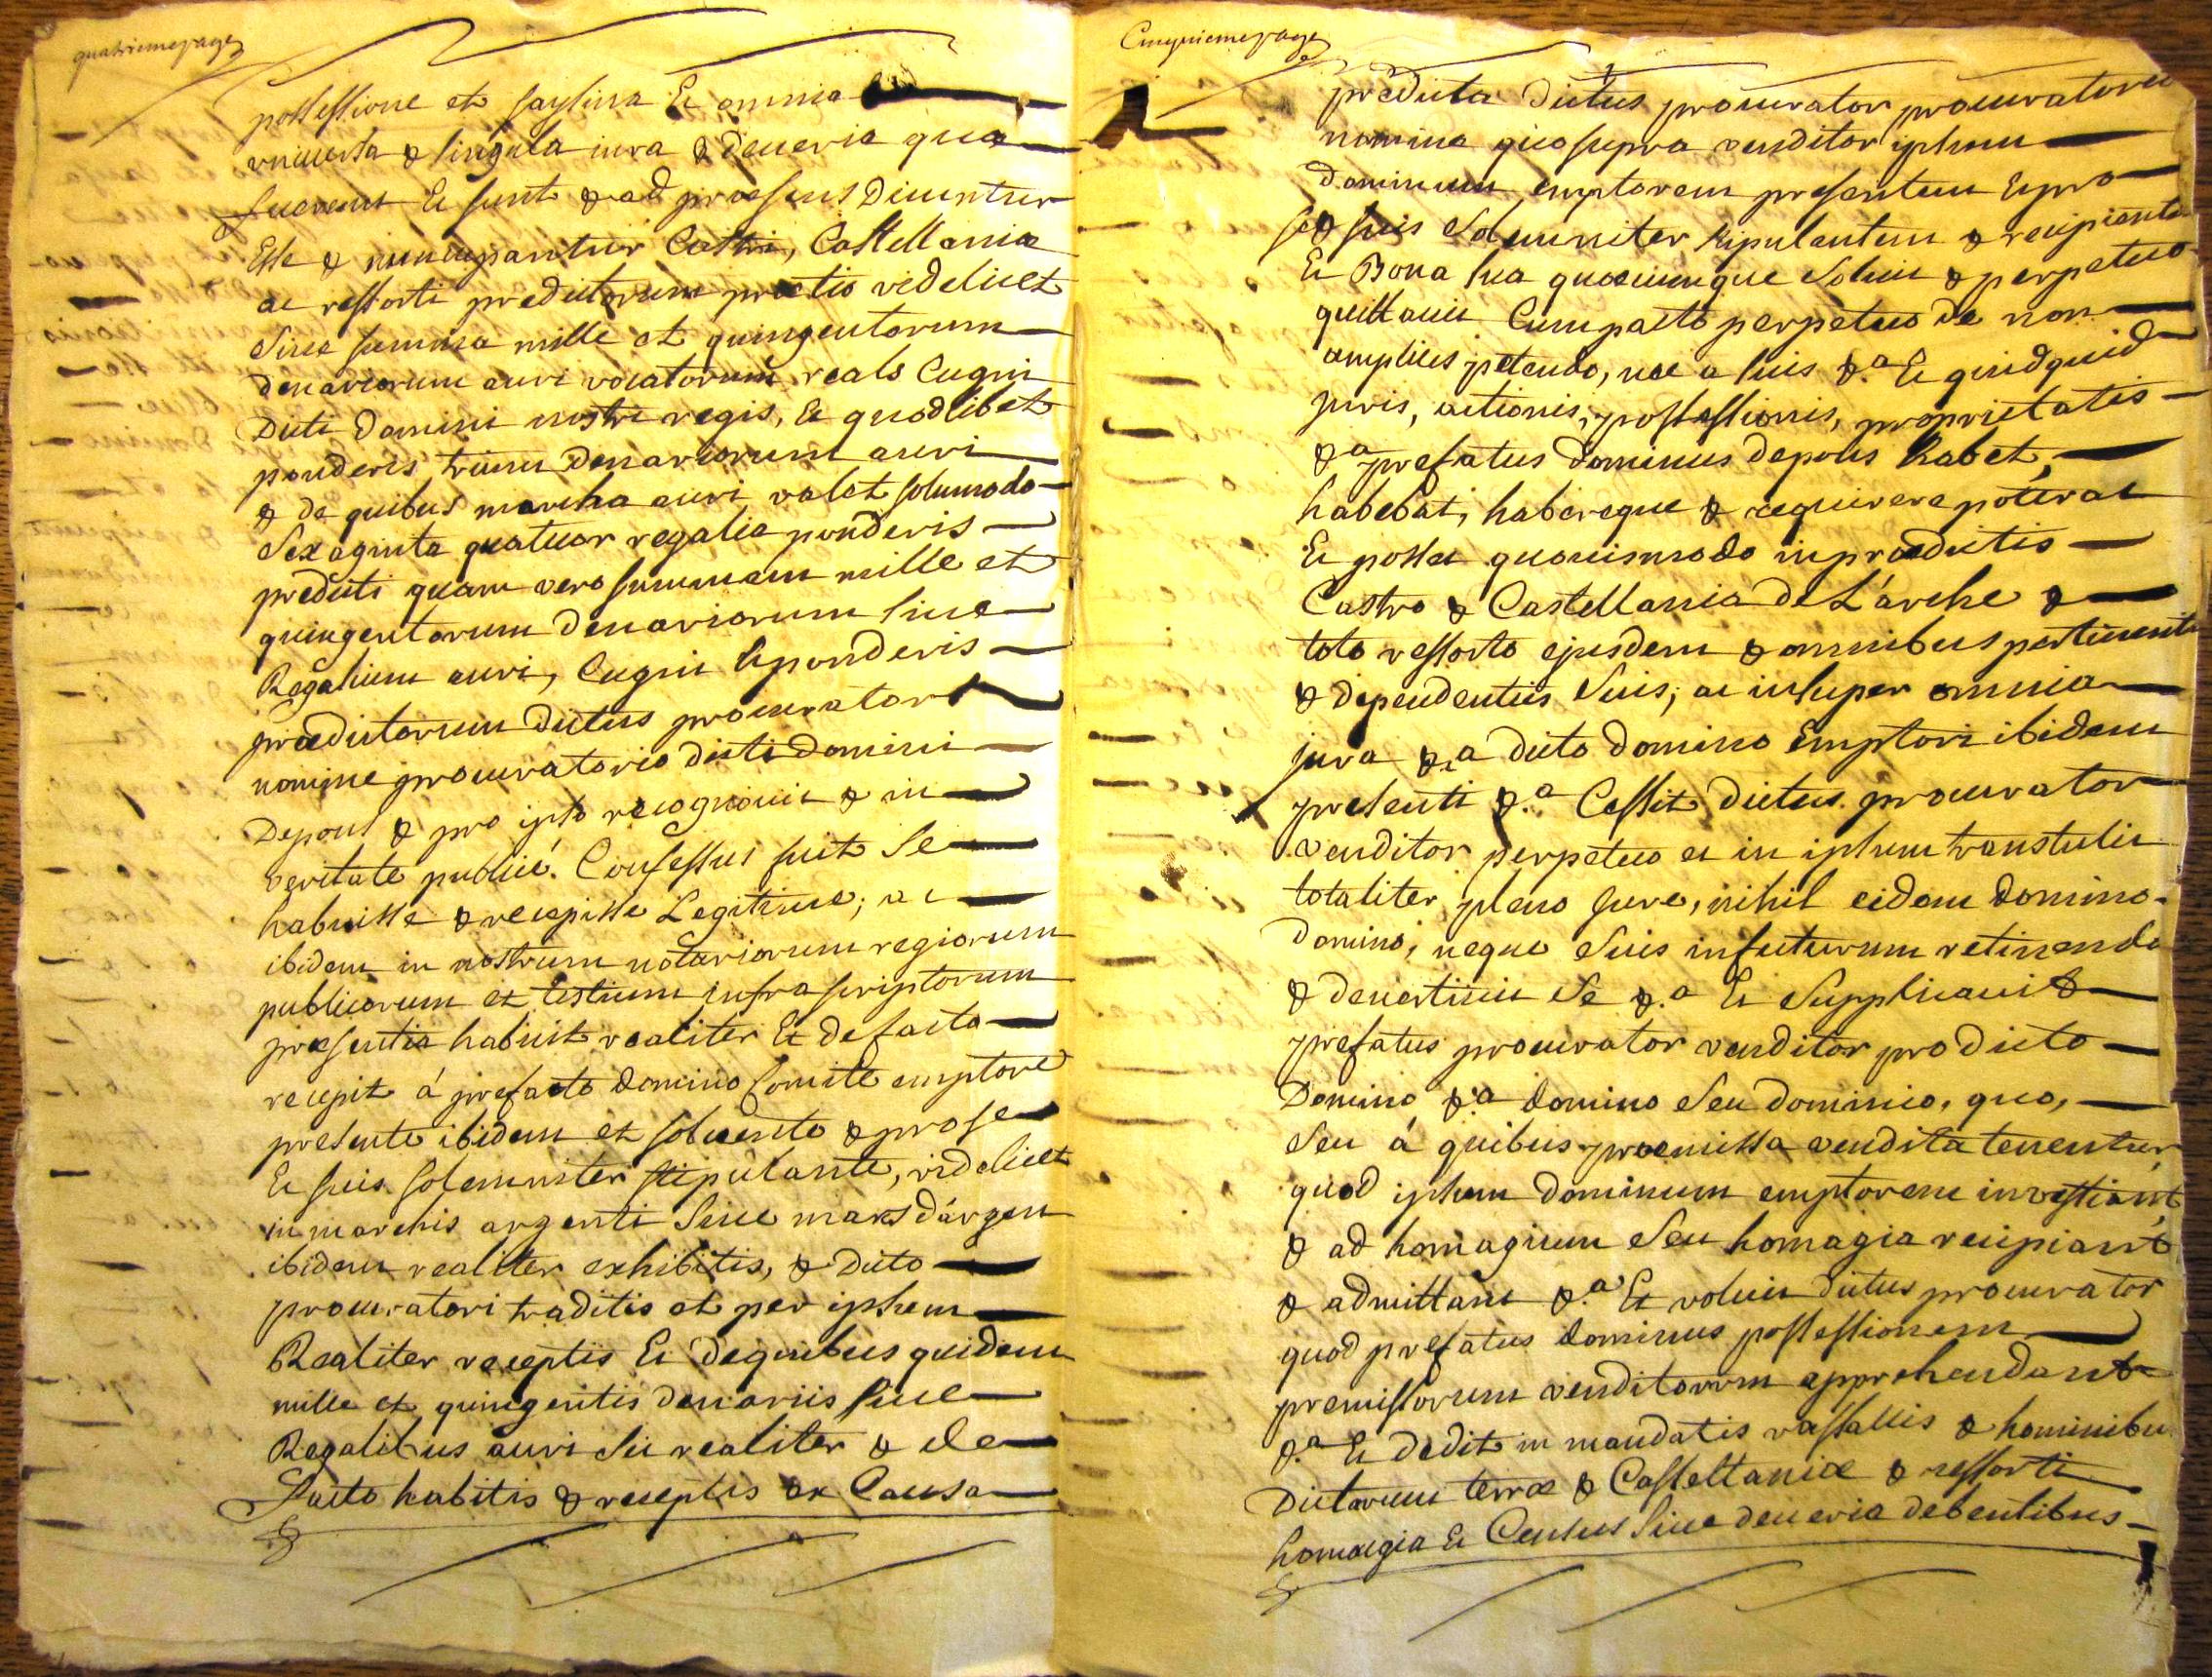 quatriemepage
possessione et saysina Et omnia
vniuersa & singula iura & deueria quæ
fuerunt Et sunt & ad præsens Dicuntur
Esse & nuncupantur Castri, Castellaniæ
ac ressorti predictorum prætio videlicet
Siue summa mille et quingentorum
denariorum auri vocatorum reals Cugni
Dicti domini nostri regis, Et quodlibet
ponderis trium denariorum auri
& de quibus marcha auri valet solumodo
Sexaginta quatuor regalia ponderis
predicti quam vero summam mille et
quingentorum denariorum siue
Regalium auri, Cugni Et ponderis
prædictorum dictus procurator
nomine procuratorio dicti domini
Depons & pro ipso recognouit & in
veritate publicé. Confessus fuit Se
habuisse & recepisse Legitime; ac
ibidem in nostrum notariorum regiorum
publicorum et testium infra scriptorum
præsentia habuit realiter Et de facto
recepit á prefacto domino Comite emptore
presente ibidem et soluente & pro se
Et suis solemniter stipulante, videlicet
in marchis argenti Siue marcs d'argen
ibidem realiter exhibitis, & Dicto
procuratori traditis et per ipsum
Realiter receptis Et dequibus quidem
mille et quingentis denariis siue
Regalibus auri Sic realiter & de
facto habitis & receptis ex Causa
Cinquiemepage
prædicta dictus procurator procuratorio
nomine quo supra venditor ipsum
dominum emptorem presentem Et pro
se & suis Solemniter stipulantem & recipiente
Et Bona sua quæcumque Soluit & perpetuo
quittauit Cum pacto perpetuo de non
amplius petendo, nec a suis &.a Et quidquid
juris, actionis, possessionis, proprietatis
&.a prefatus dominus depons habet,
habebat, habereque & requirere poterat
Et posset quouismodo in prædictis
Castro & Castellania de L'arche &
toto ressorto ejusdem & omnibus pertinenti
& dependentiis Suis; ac insuper omnia
jura &.a dicto domino Emptori ibidem
presenti &.a Cessit dictus procurator
venditor perpetuo et in ipsum transtulit
totaliter pleno jure, nihil eidem domino
domino, neque Suis in futurum retinendo
& deuestiuit Se &.a Et Supplicauit
prefatus procurator venditor pro dicto
Domino &.a domino Seu dominio, quo,
Seu á quibus præmissa vendita tenentur
quod ipsum dominum emptorem inuestiant
& ad homagium Seu homagia recipiant
& admittant &.a Et voluit dictus procurator
quod prefatus dominus possessionem
premissorum venditorum apprehendant
&.a Et dedit in mandatis vassallis & hominibu
Dictarum terræ & Castellaniæ & ressorti
homagia Et Census Siue deueria debentibus